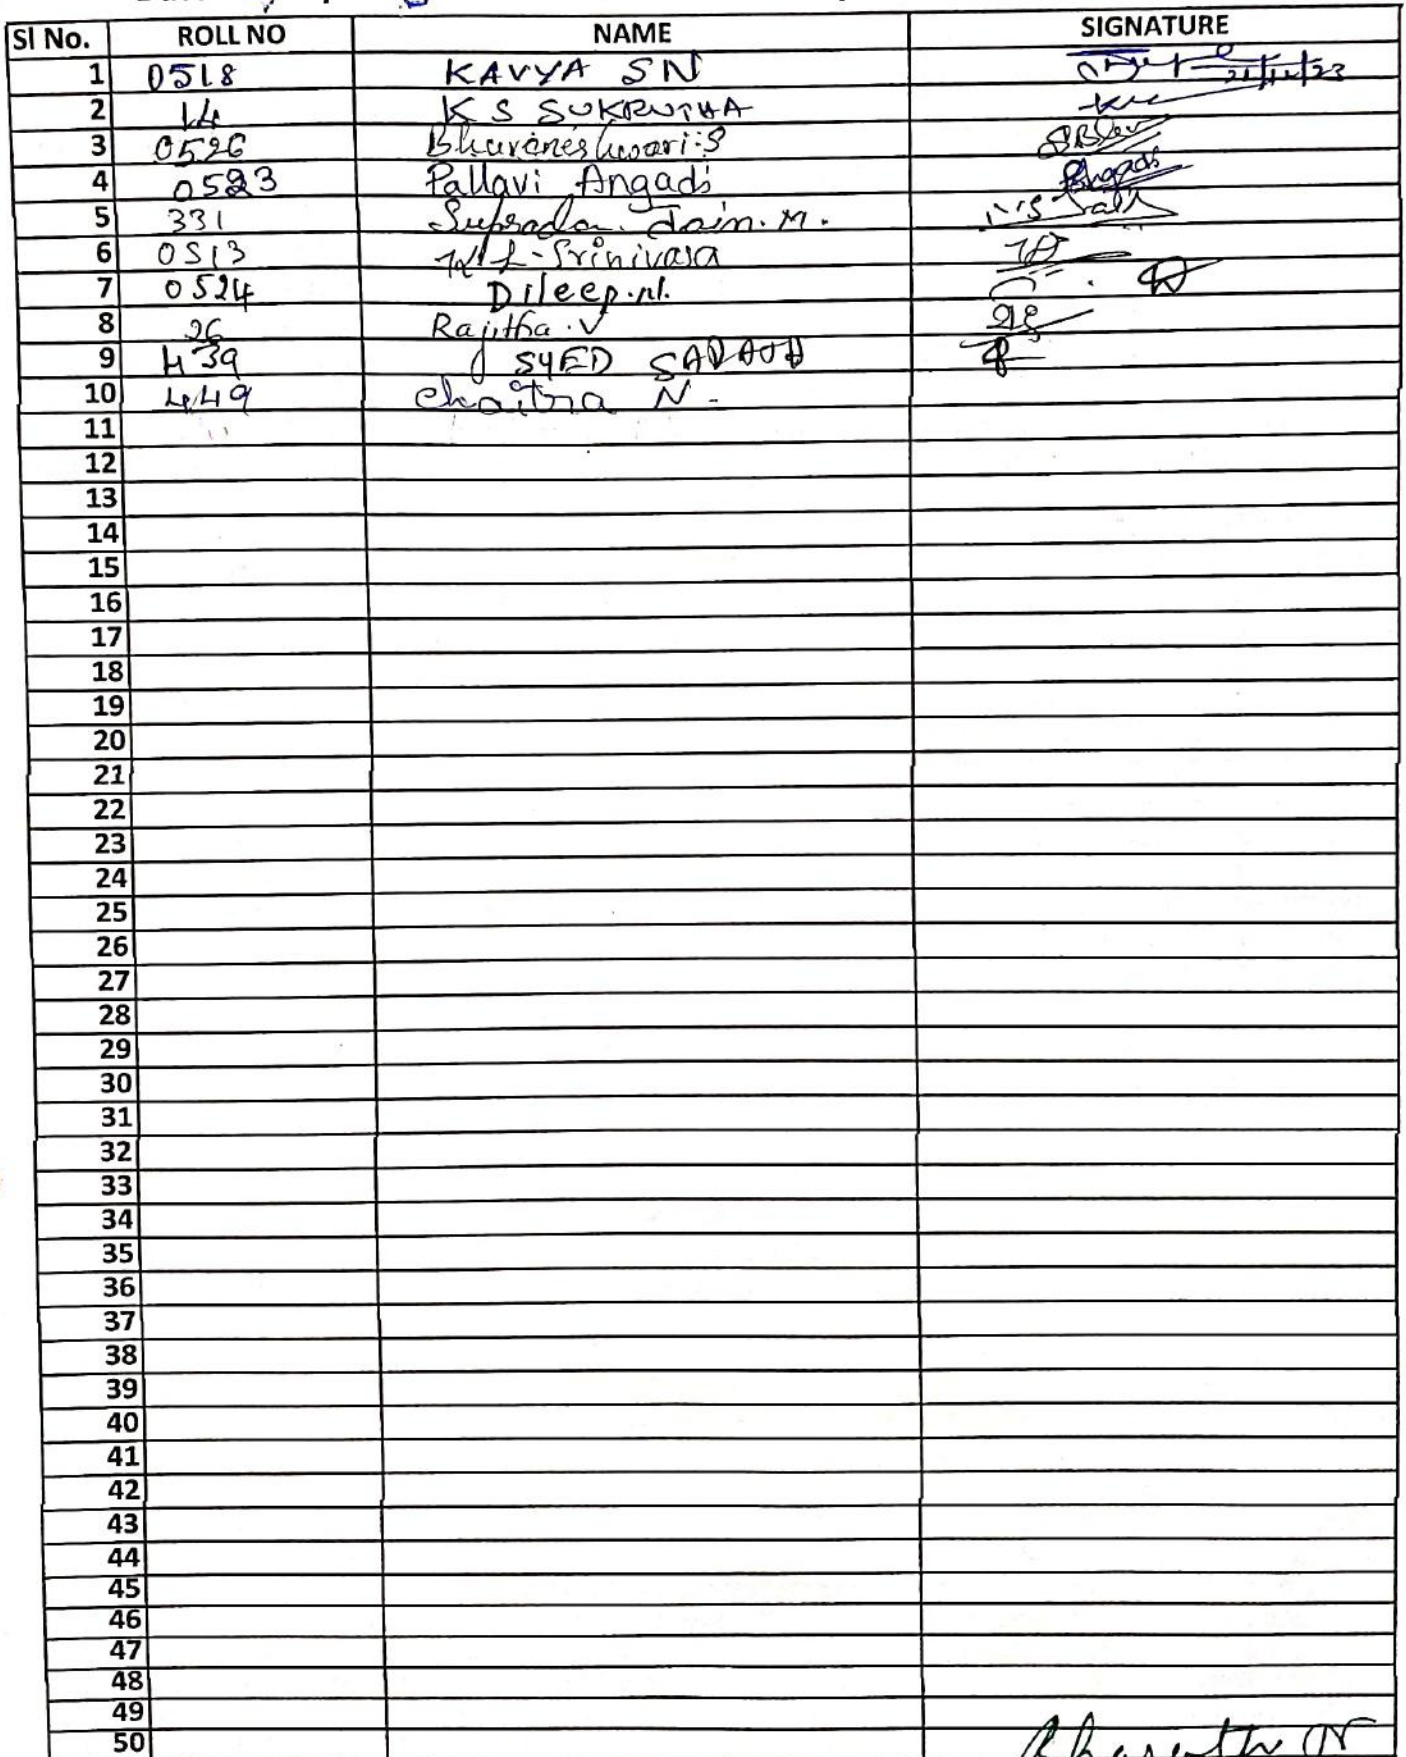 SI No. ROLL NO NAME SIGNATURE
1 0518 KAVYA SN 21/11/23
2 14 K S SUKRUTHA
3 0526 Bhuvaneshwari.S
4 0523 Pallavi Angadi Angadi
5 331 Suprada Jain. M.
6 0513 L-Srinivasa
7 0524 Dileep.
8 26 Rajitha.V
9 439 SYED
10 449 Chaitra N-
11
12
13
14
15
16
17
18
19
20
21
22
23
24
25
26
27
28
29
30
31
32
33
34
35
36
37
38
39
40
41
42
43
44
45
46
47
48
49
50 Bharath N